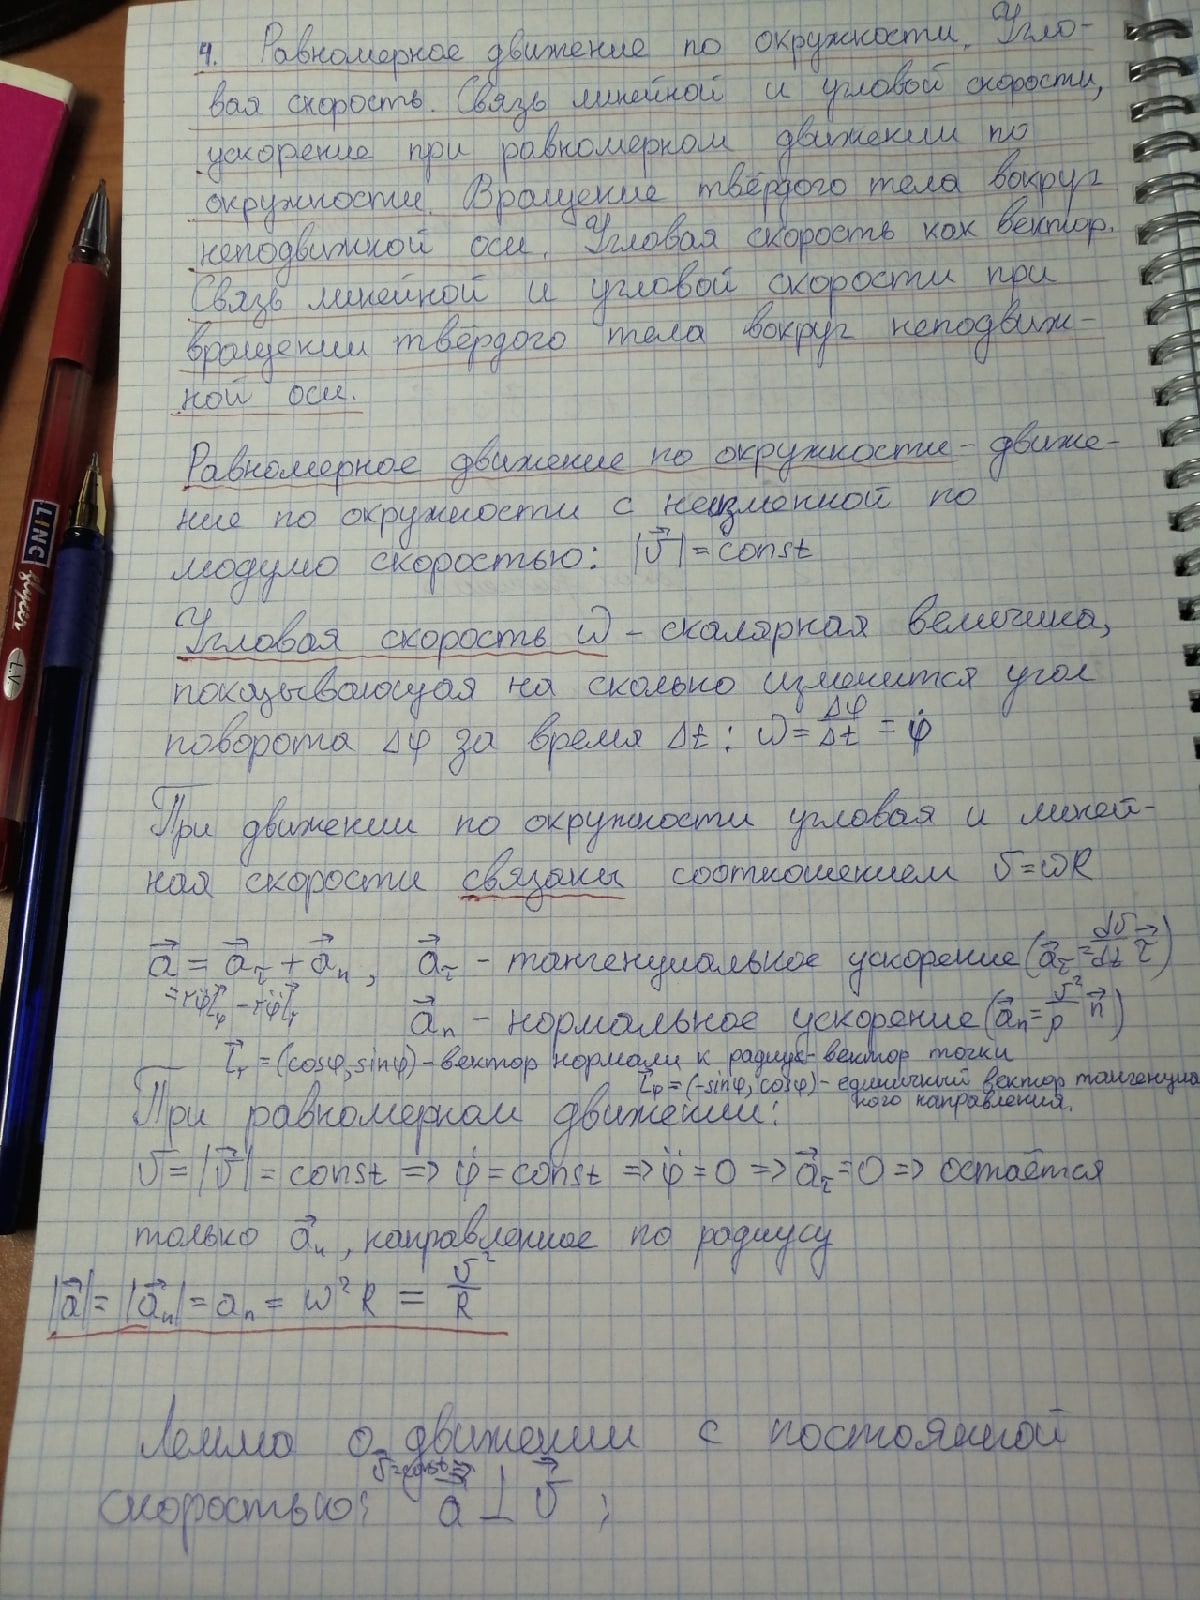 4. Равномерное движение по окружности. Угло-
вая скорость. Связь линейной и угловой скорости,
ускорение при равномерном движении по
окружности. Вращение твёрдого тела вокруг
неподвижной оси. Угловая скорость как вектор.
Связь линейной и угловой скорости при
вращении твёрдого тела вокруг неподвиж-
ной оси.
Равномерное движение по окружности - движе-
ние по окружности с неизменной по
модулю скоростью: |v⃗| = const
Угловая скорость ω - скалярная величина,
показывающая на сколько изменится угол
поворота Δφ за время Δt: ω = Δφ/Δt = φ̇
При движении по окружности угловая и линей-
ная скорости связаны соотношением v = ωR
a⃗ = a⃗τ + a⃗n, a⃗τ - тангенциальное ускорение (a⃗τ = dv/dt τ⃗)
a⃗n - нормальное ускорение (a⃗n = v²/ρ n⃗)
= (cosφ, sinφ) - вектор нормали к радиус-вектор точки
= (-sinφ, cosφ) - единичный вектор тангенциа
ного направления.
При равномерном движении:
v = |v⃗| = const => φ̇ = const => φ̈ = 0 => a⃗τ = 0 => остаётся
только a⃗n, направленное по радиусу
|a⃗| = |a⃗n| = an = ω²R = v²/R
Лемма о движении с постоянной
скоростью: v = const => a⃗ ⊥ v⃗;
LINC